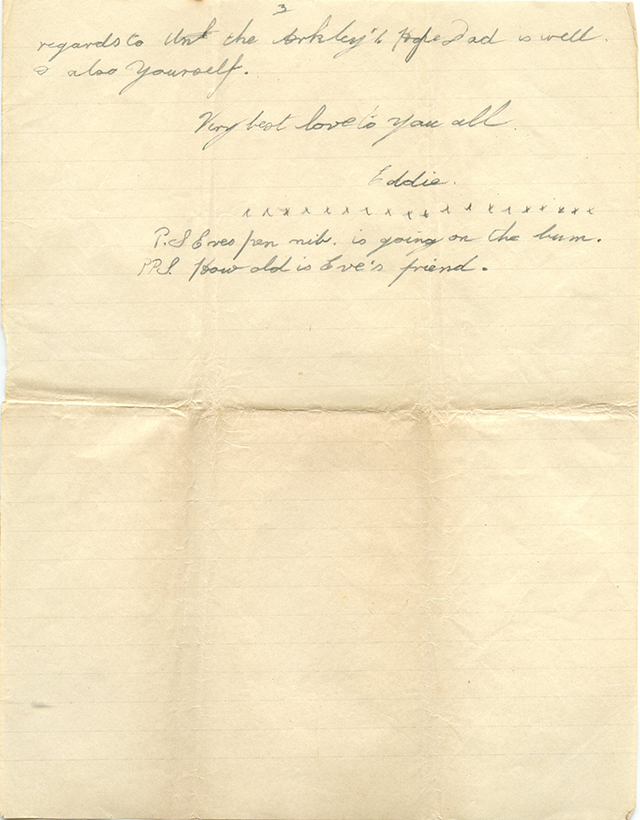 3
regards to the Arkley's Hope Dad is well.
& also Yourself.
Very best love to you all
Eddie.
x x x x x x x x x x x x x x x x x x x x
P.S Eves pen nib. is going on the bum.
PPS. How old is Eve's friend.